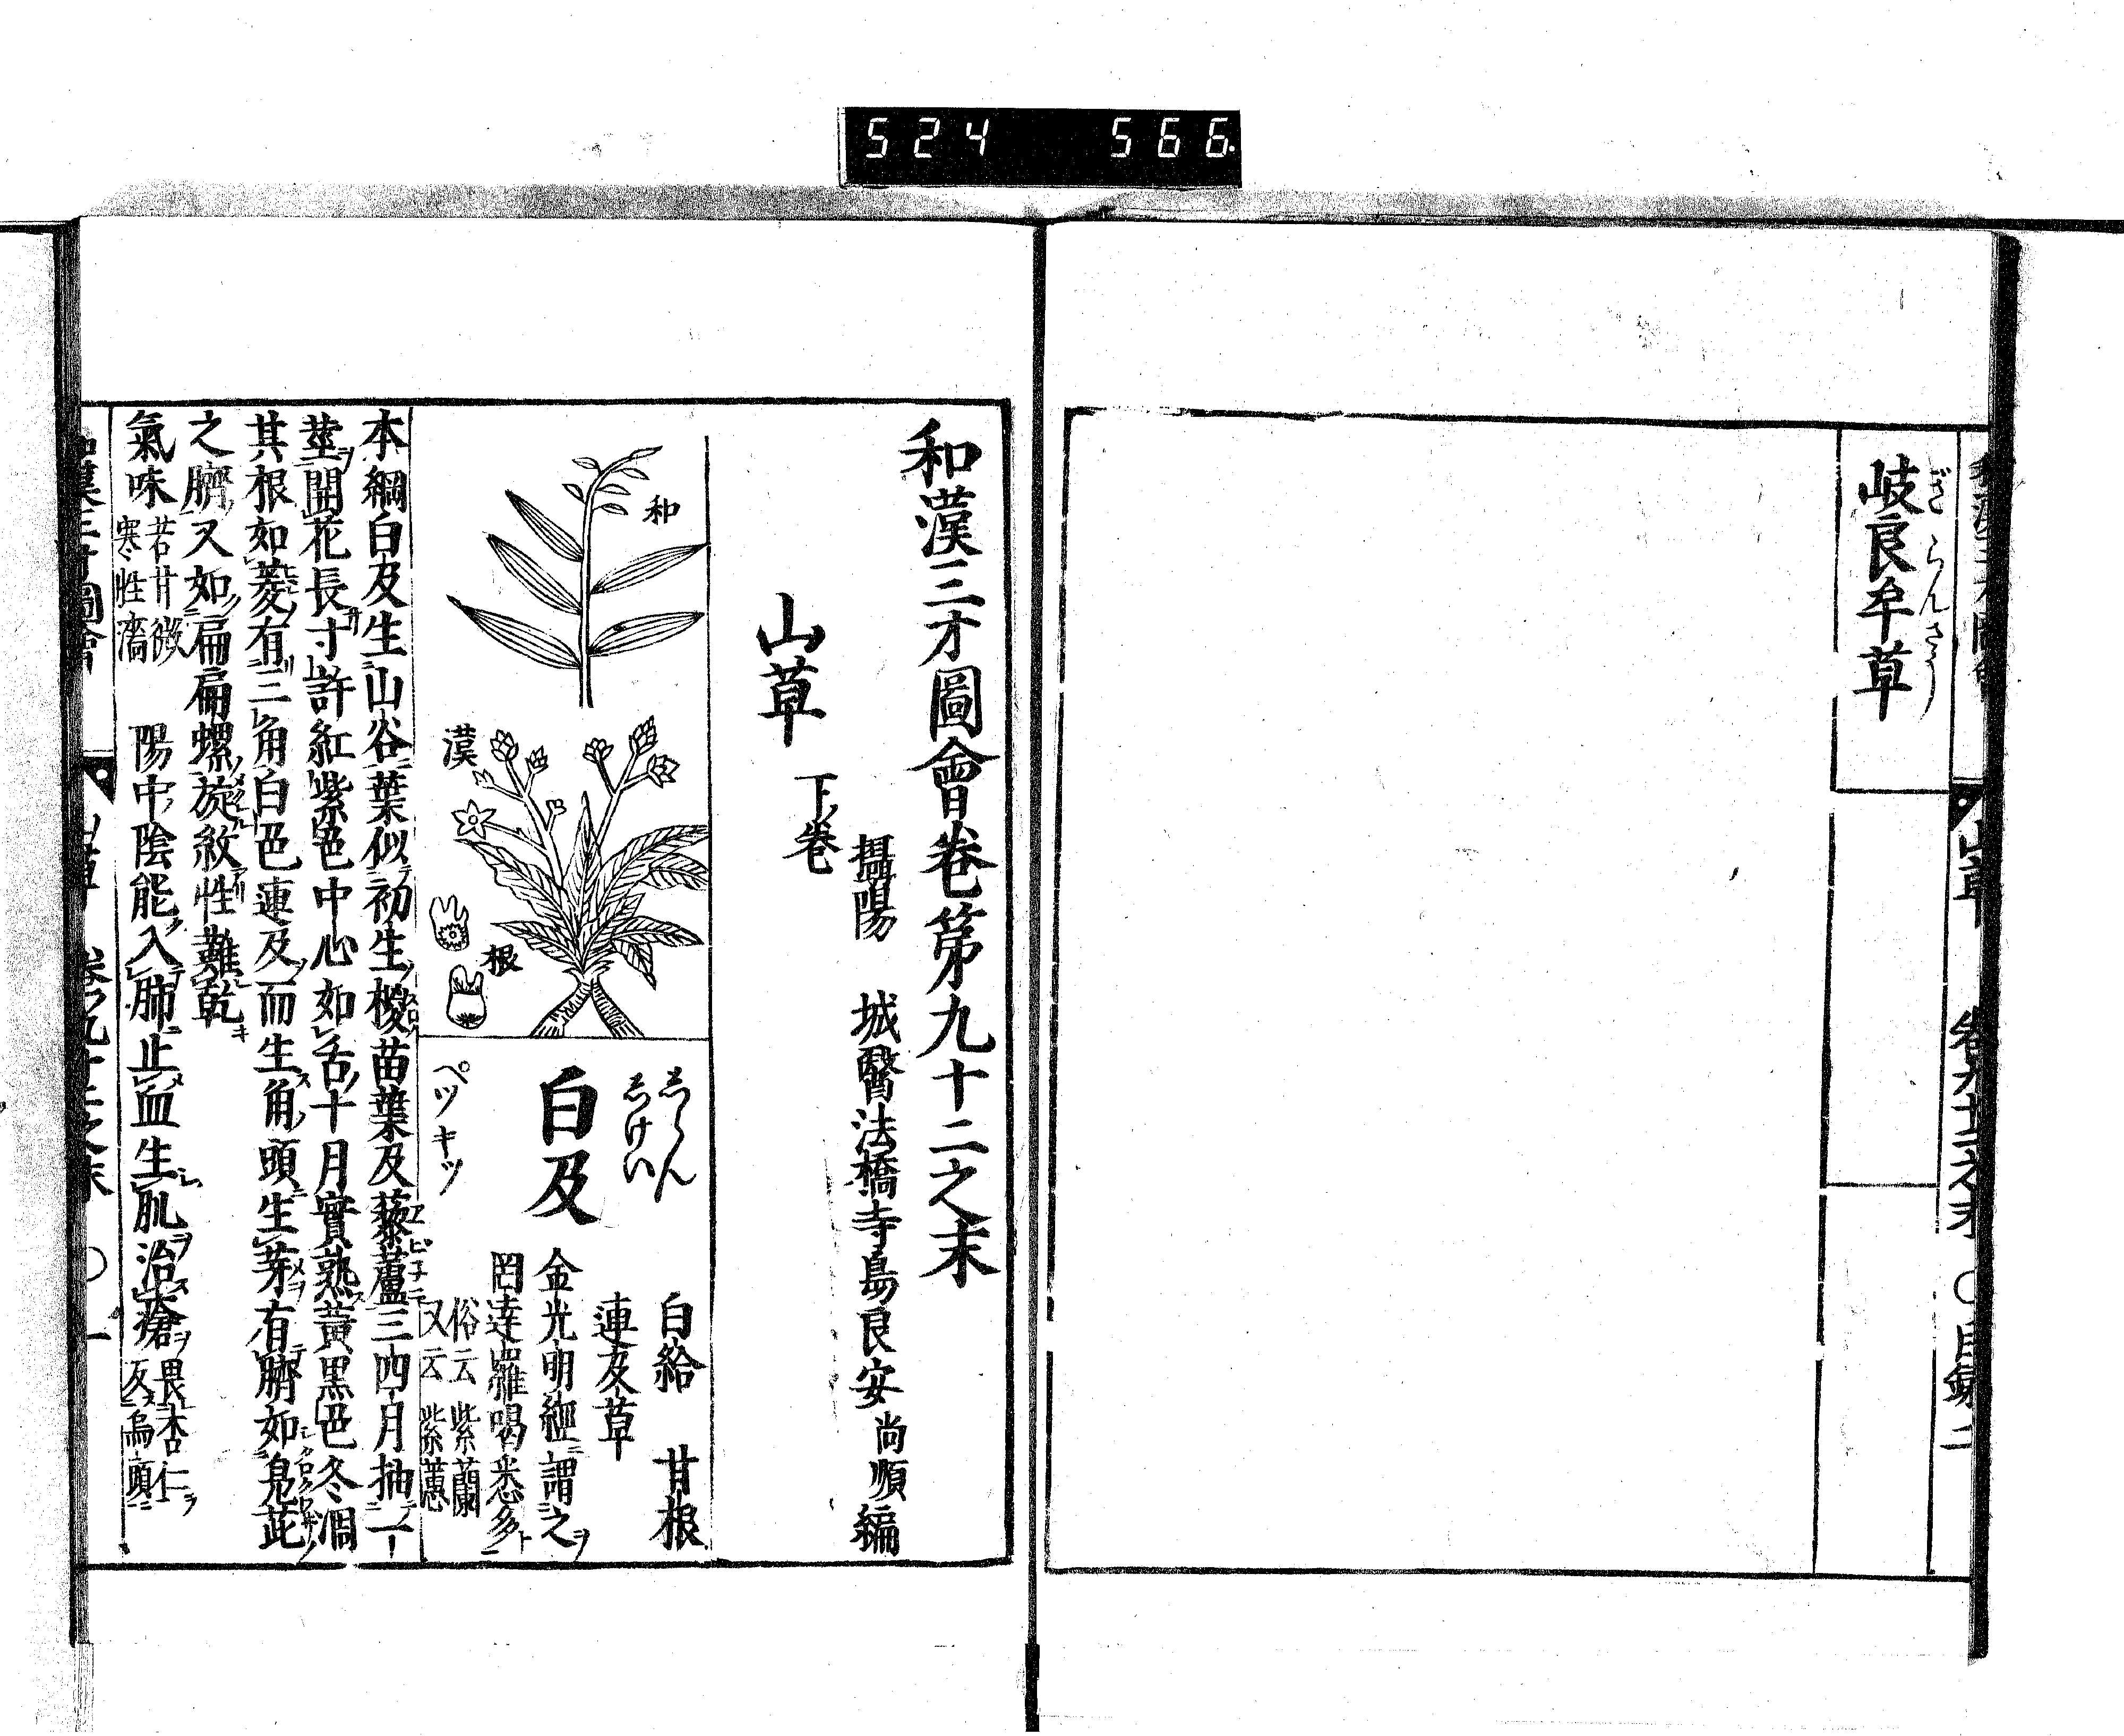 524 566
和漢三才圖會
山草 卷九十二之末 〇目録 二
岐良牟草
ぎらんさう
和漢三才圖會卷第九十二之末
攝陽 城醫法橋寺島良安尚順編
山草 下ノ卷
和
漢
根
しらん
しけい
白及
ペツキツ
白給 甘根
連及草
金光明經謂之
罔達羅喝悉多
俗云 紫蘭
又云 紫蕙
本綱白及生山谷葉似初生椶苗葉及藜蘆三四月抽一
莖開花長寸許紅紫色中心如舌十月實熟黃黒色冬凋
其根如菱有三角白色連及而生角頭生芽有臍如鳬茈
之臍又如扁扁螺旋紋性難乾
氣味 苦甘微寒性濇 陽中陰能入肺止血生肌治瘡 畏杏仁反烏頭